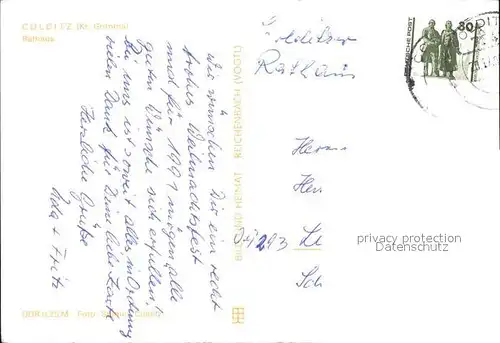 COLDITZ (Kr. Grimma)
Rathaus
Wir wünschen Dir ein recht
frohes Weihnachtsfest
und für 1991 mögen alle
guten Wünsche sich erfüllen!
Bei uns ist soweit alles in Ordnung
vielen Dank für Deine liebe Karte
Herzliche Grüße
+ Fritz
BILD UND HEIMAT REICHENBACH (VOGTL)
Foto:
Colditzer
Rathaus
DEUTSCHE POST
30
Herrn
privacy protection
Datenschutz